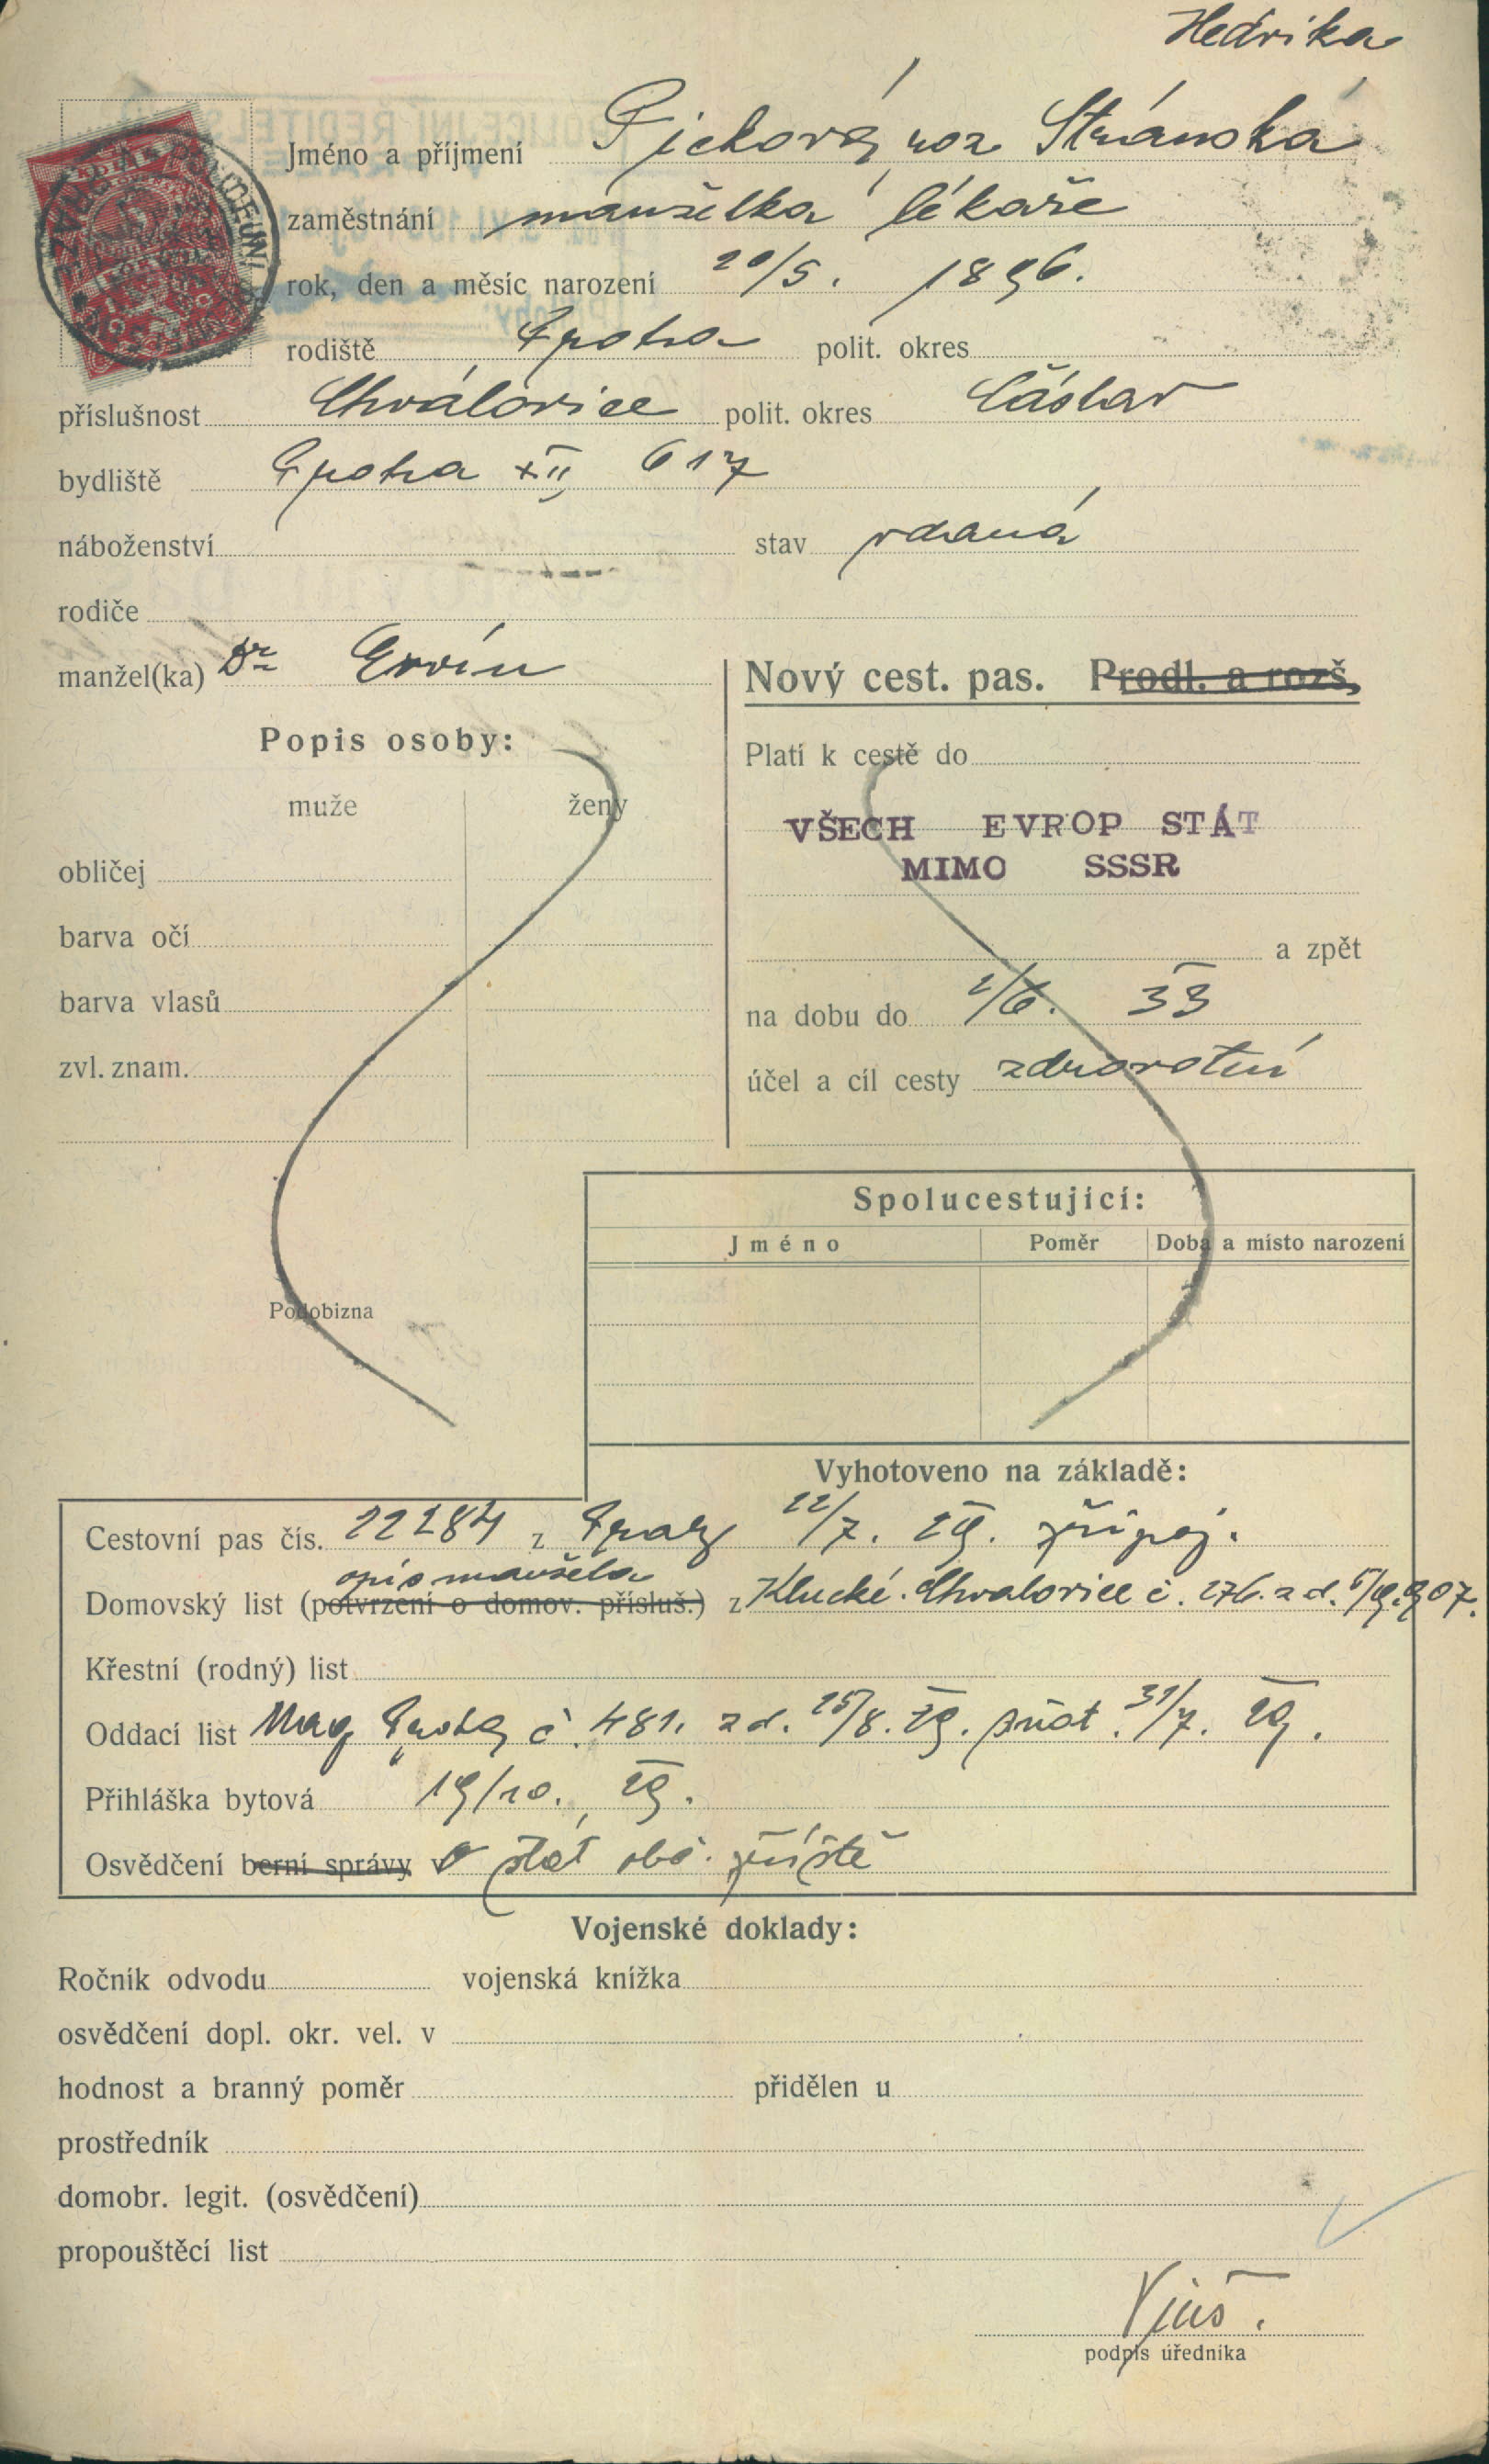 Hedvika
Jméno a příjmení Picková, roz. Stránská
zaměstnání manželka lékaře
rok, den a měsíc narození 20/5. 1896.
rodiště Praha polit. okres
příslušnost Chvalovice polit. okres Čáslav
bydliště Praha XII, 617
náboženství stav vdaná
rodiče
manžel(ka) Dr Ervín
Nový cest. pas. Prodl. a rozš.
Popis osoby:
muže ženy
obličej
barva očí
barva vlasů
zvl. znam.
Platí k cestě do
VŠECH EVROP STÁT
MIMO SSSR
a zpět
na dobu do 2/6. 33
účel a cíl cesty zdravotní
Podobizna
Spolucestující:
Jméno Poměr Doba a místo narození
Vyhotoveno na základě:
Cestovní pas čís. 22284 z Prahy 22/7. 29. připoj.
opis manžela
Domovský list (potvrzení o domov. přísluš.) z Klucké Chvalovice č. 276. z d. 5/9. 907.
Křestní (rodný) list
Oddací list Mag Prahy č. 481. z d. 25/8. 29. sňat. 31/7. 29.
Přihláška bytová 19/10. 29.
Osvědčení berní správy v o stát. obč. příště
Vojenské doklady:
Ročník odvodu vojenská knížka
osvědčení dopl. okr. vel. v
hodnost a branný poměr přidělen u
prostředník
domobr. legit. (osvědčení)
propouštěcí list
podpis úředníka